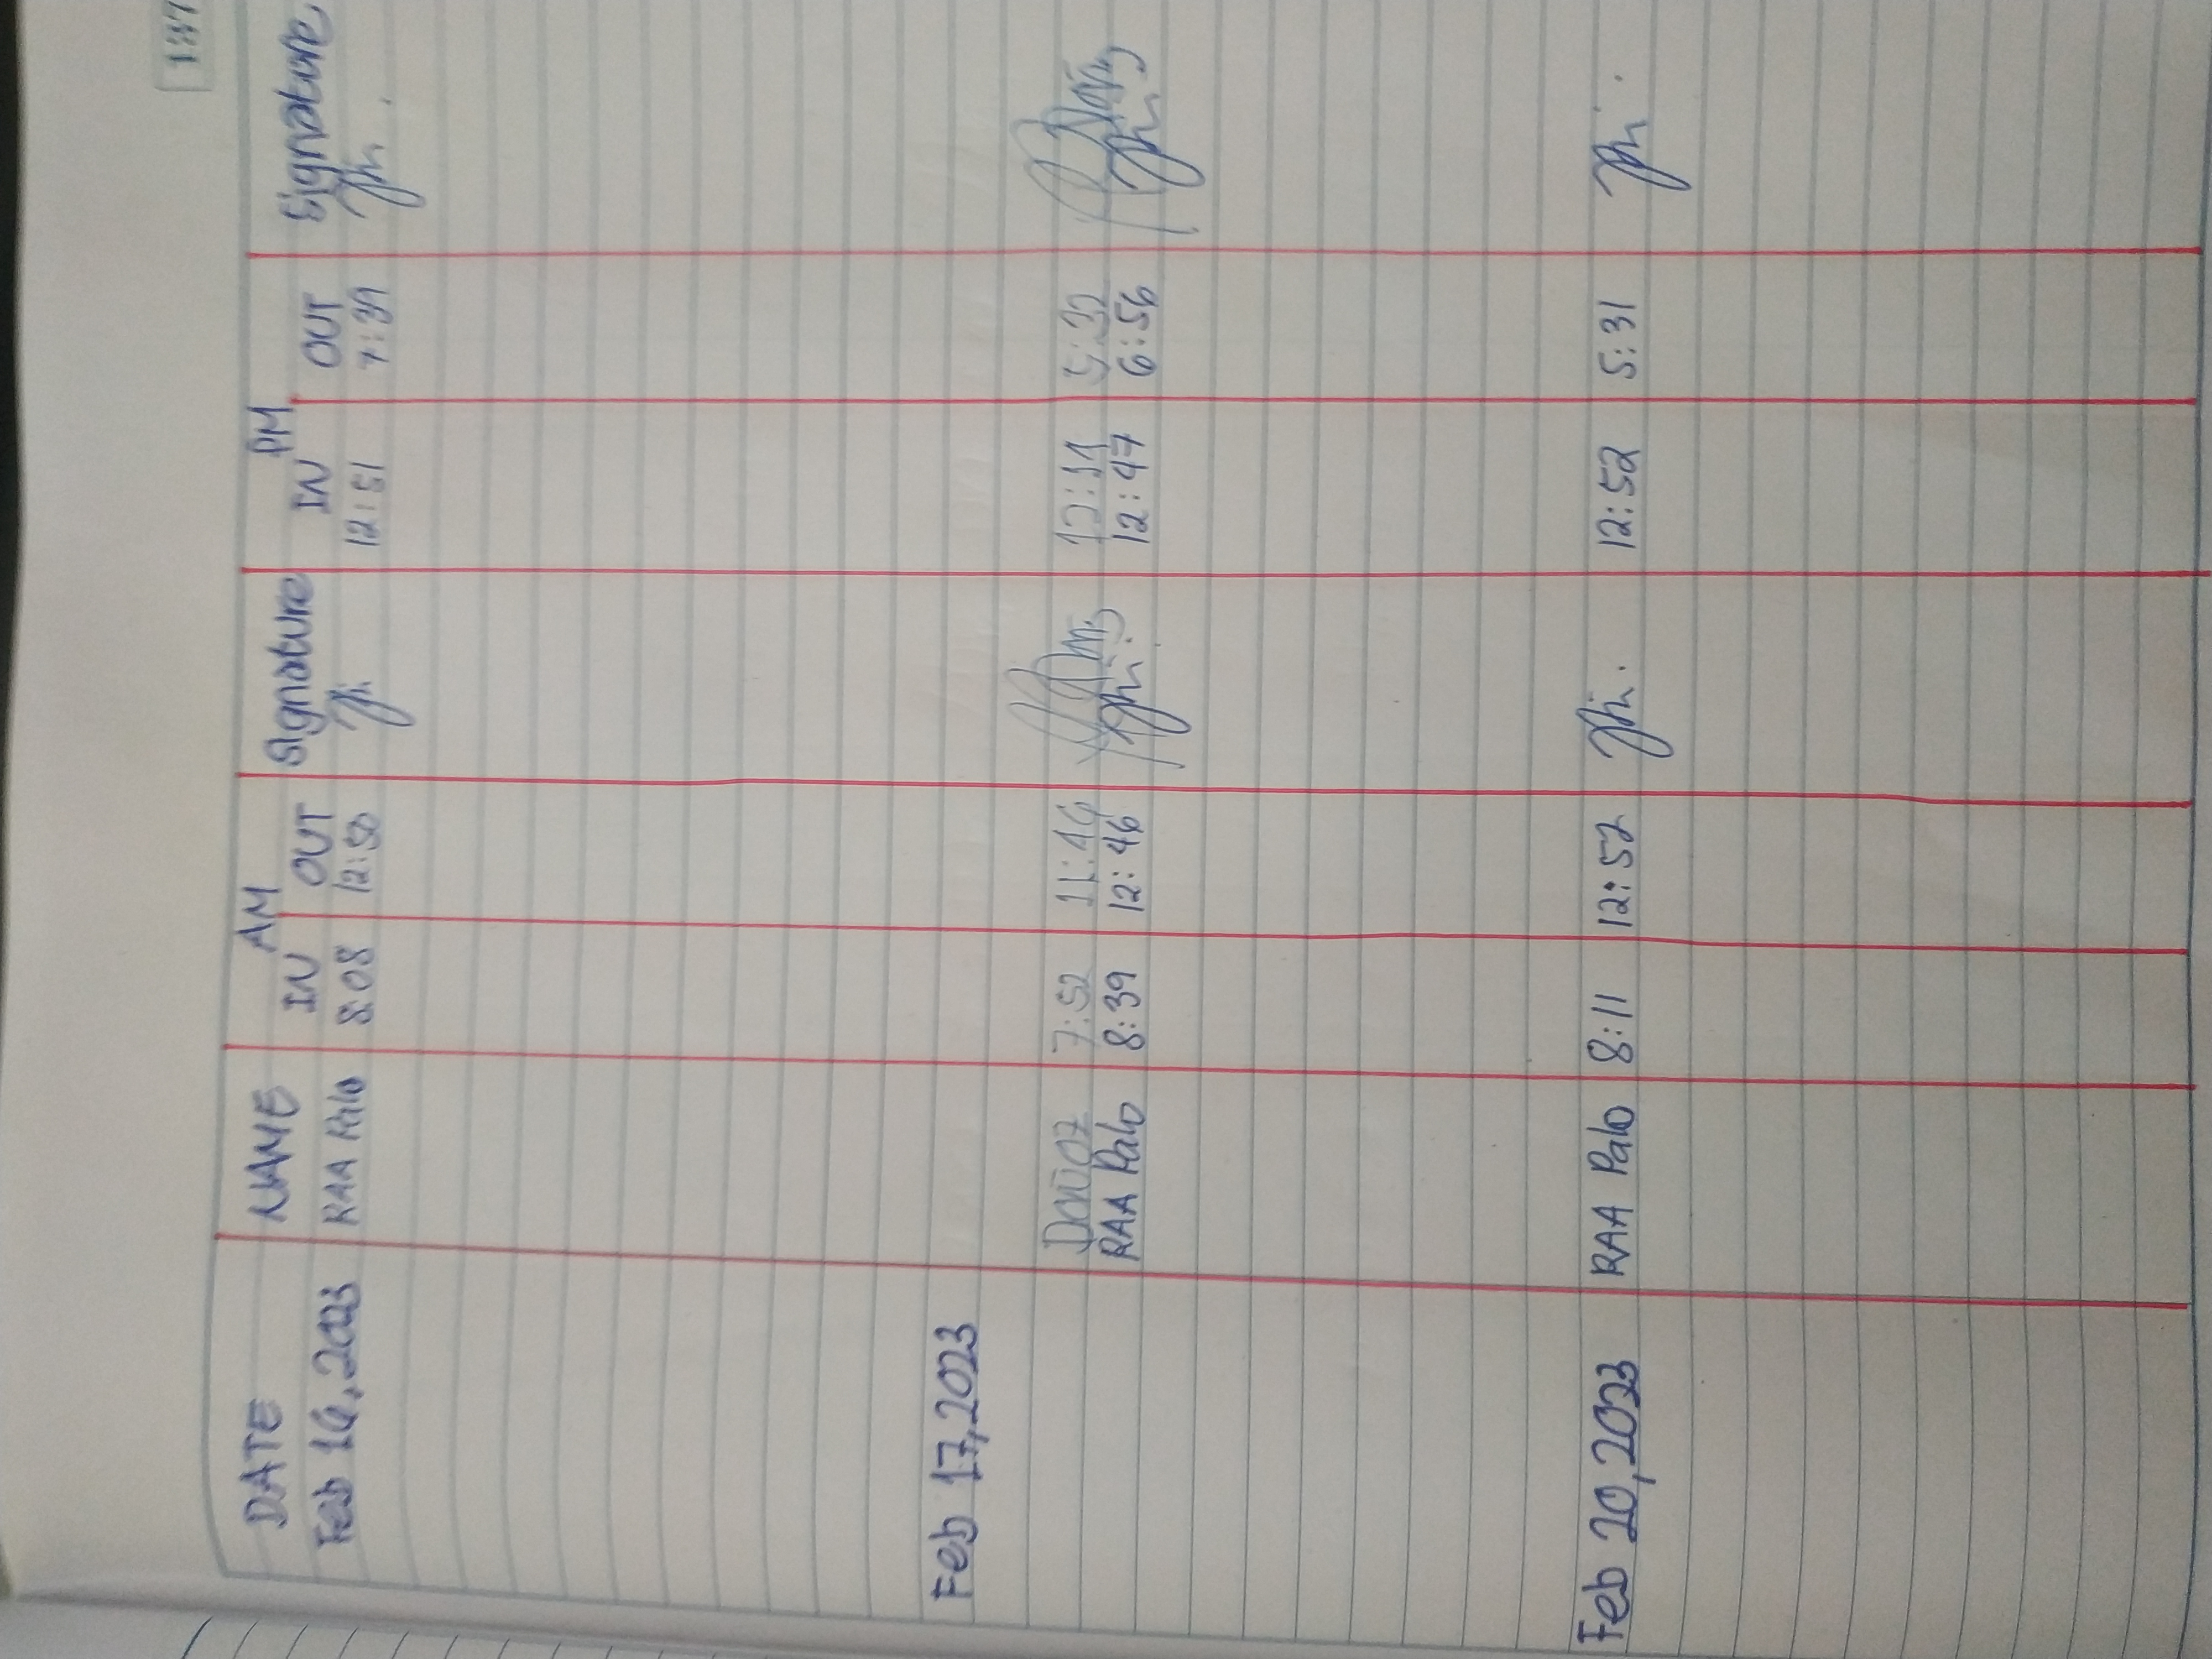 AM PM
DATE NAME IN OUT Signature IN OUT Signature
Feb 16, 2023 RAA Palo 8:08 12:50 12:51 7:39
Feb 17, 2023
7:52 12:11 5:32
RAA Palo 8:39 12:46 12:47 6:56
Feb 20, 2023 RAA Palo 8:11 12:52 12:52 5:31